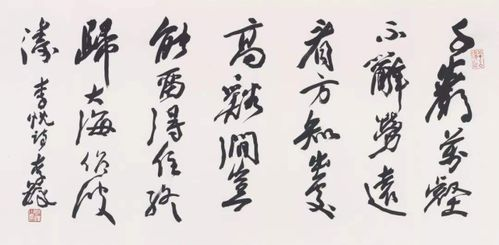 千巖萬壑
不辭勞遠
看方知出處
高谿澗豈
能留得住終
歸大海作波
濤 李忱詩 李鐸